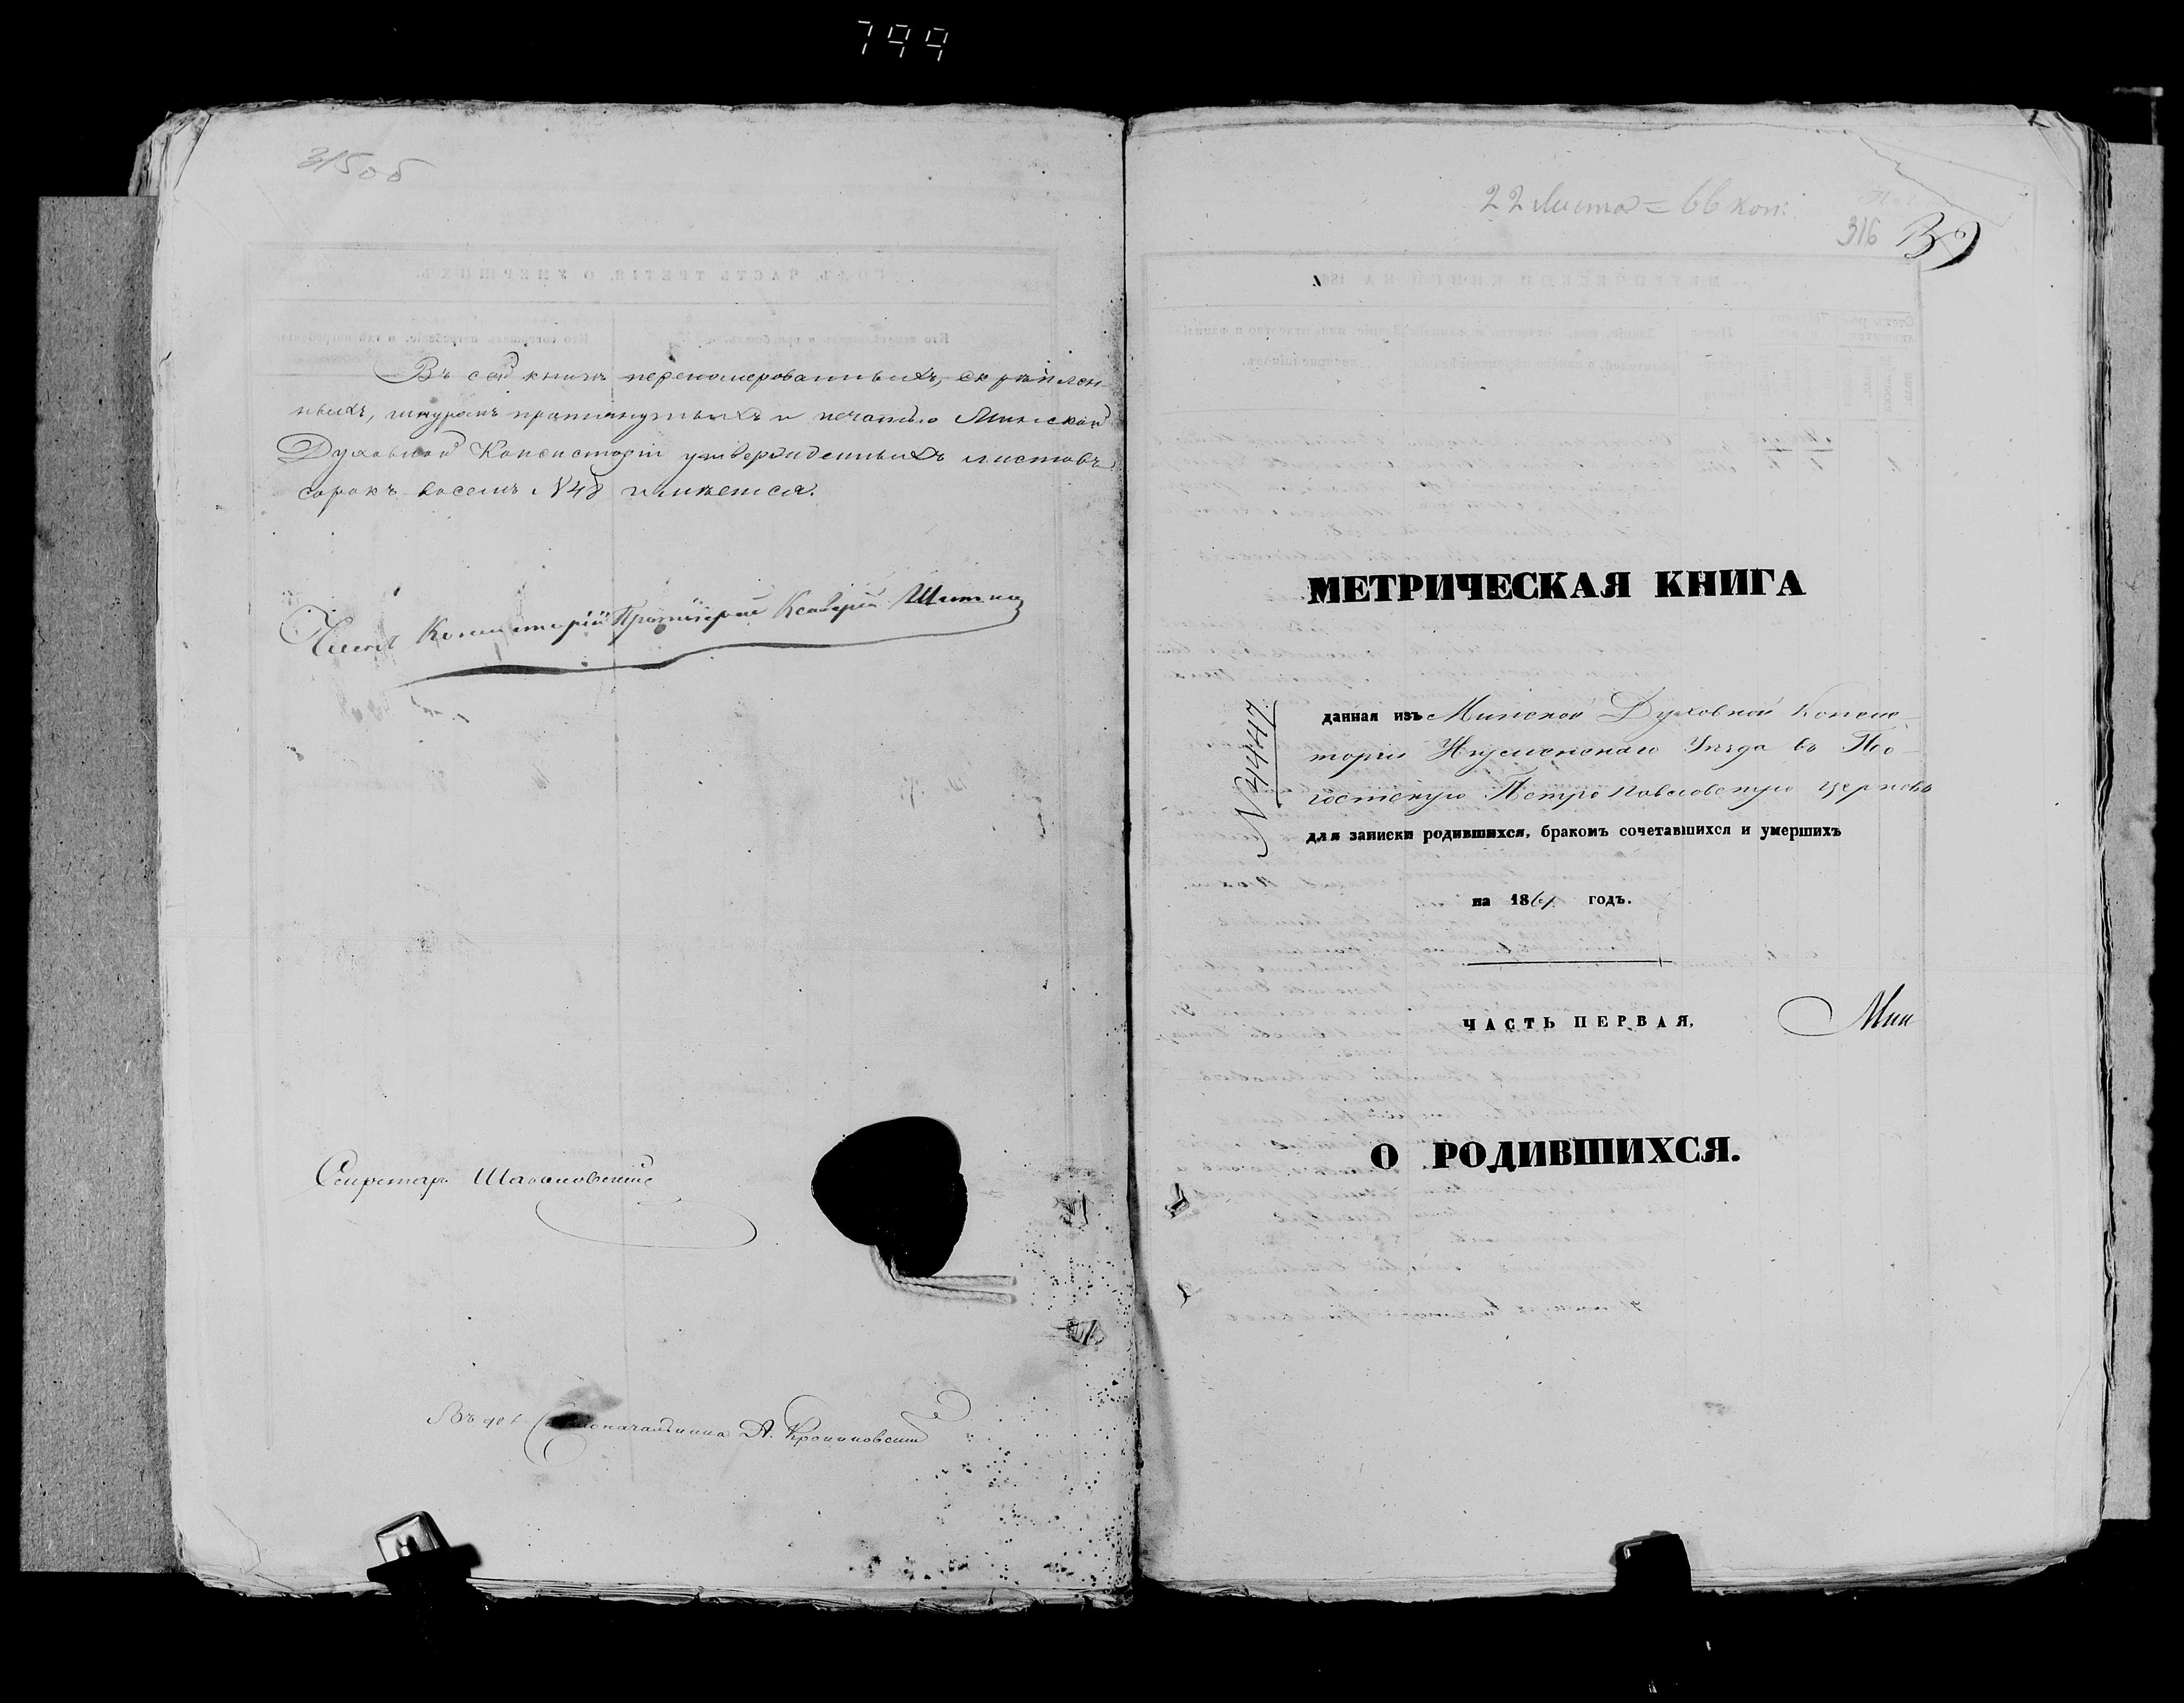 799
315 об
Въ сей книгѣ перенумерованныхъ, скрѣплен-
ныхъ, шнуромъ протянутыхъ и печатью Минской
Духовной Консисторіи утвержденныхъ листовъ
сорокъ восемь №48 имѣется.
Членъ Консисторіи Протоіерей Ксаверій
Секретарь
Столоначальника А.
22 листа = 66 коп.
316
МЕТРИЧЕСКАЯ КНИГА
№ 4447.
данная изъ Минской Духовной Консис-
торіи Игуменскаго Уѣзда въ По-
гостскую Петропавловскую церковь
для записки родившихся, бракомъ сочетавшихся и умершихъ
на 1861 годъ.
ЧАСТЬ ПЕРВАЯ,
Мин
О РОДИВШИХСЯ.